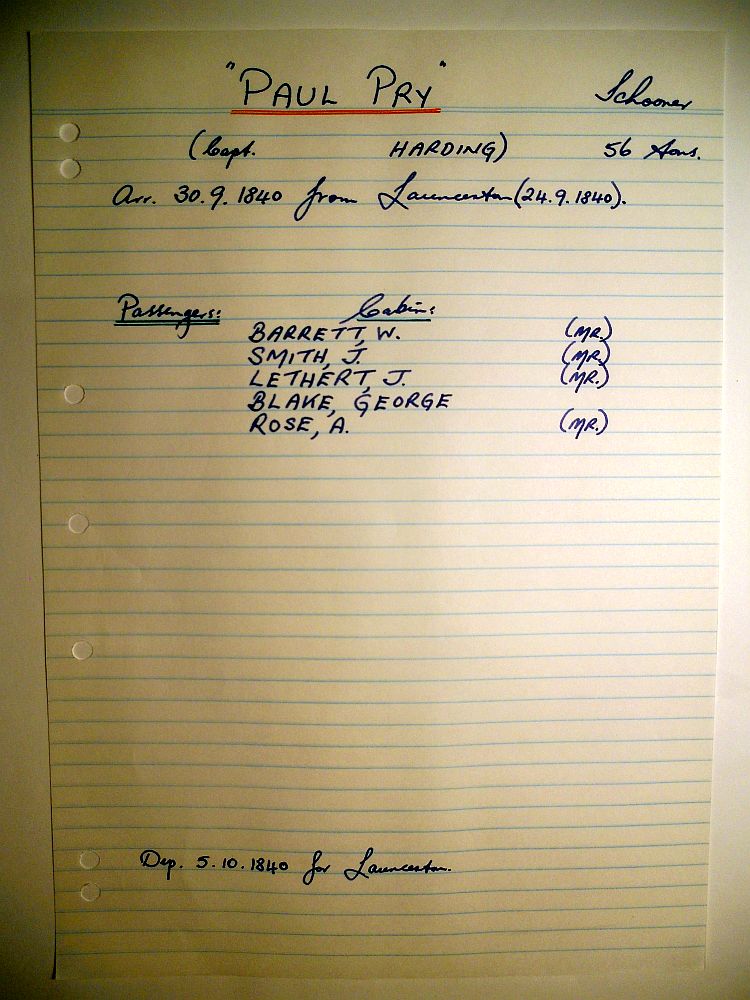 "PAUL PRY" Schooner
(Capt. HARDING) 56 tons.
Arr. 30.9.1840 from Launceston (24.9.1840).
Passengers: Cabin:
BARRETT, W. (MR.)
SMITH, J. (MR.)
LETHERT, J. (MR.)
BLAKE, GEORGE
ROSE, A. (MR.)
Dep. 5.10.1840 for Launceston.